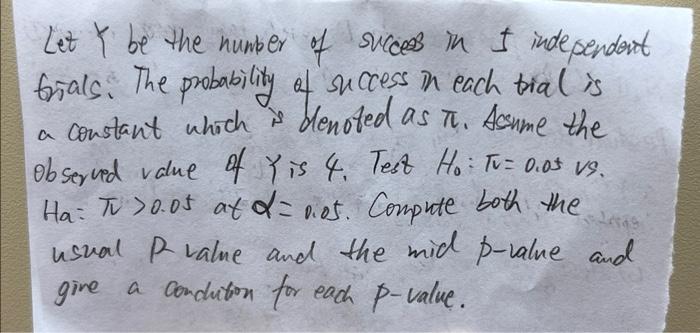 Let Y be the number of success in 5 independent
trials. The probability of success in each trial is
a constant which is denoted as π. Assume the
observed value of Y is 4. Test H₀: π = 0.05 vs.
Ha: π > 0.05 at α = 0.05. Compute both the
usual P value and the mid p-value and
give a conclution for each p-value.